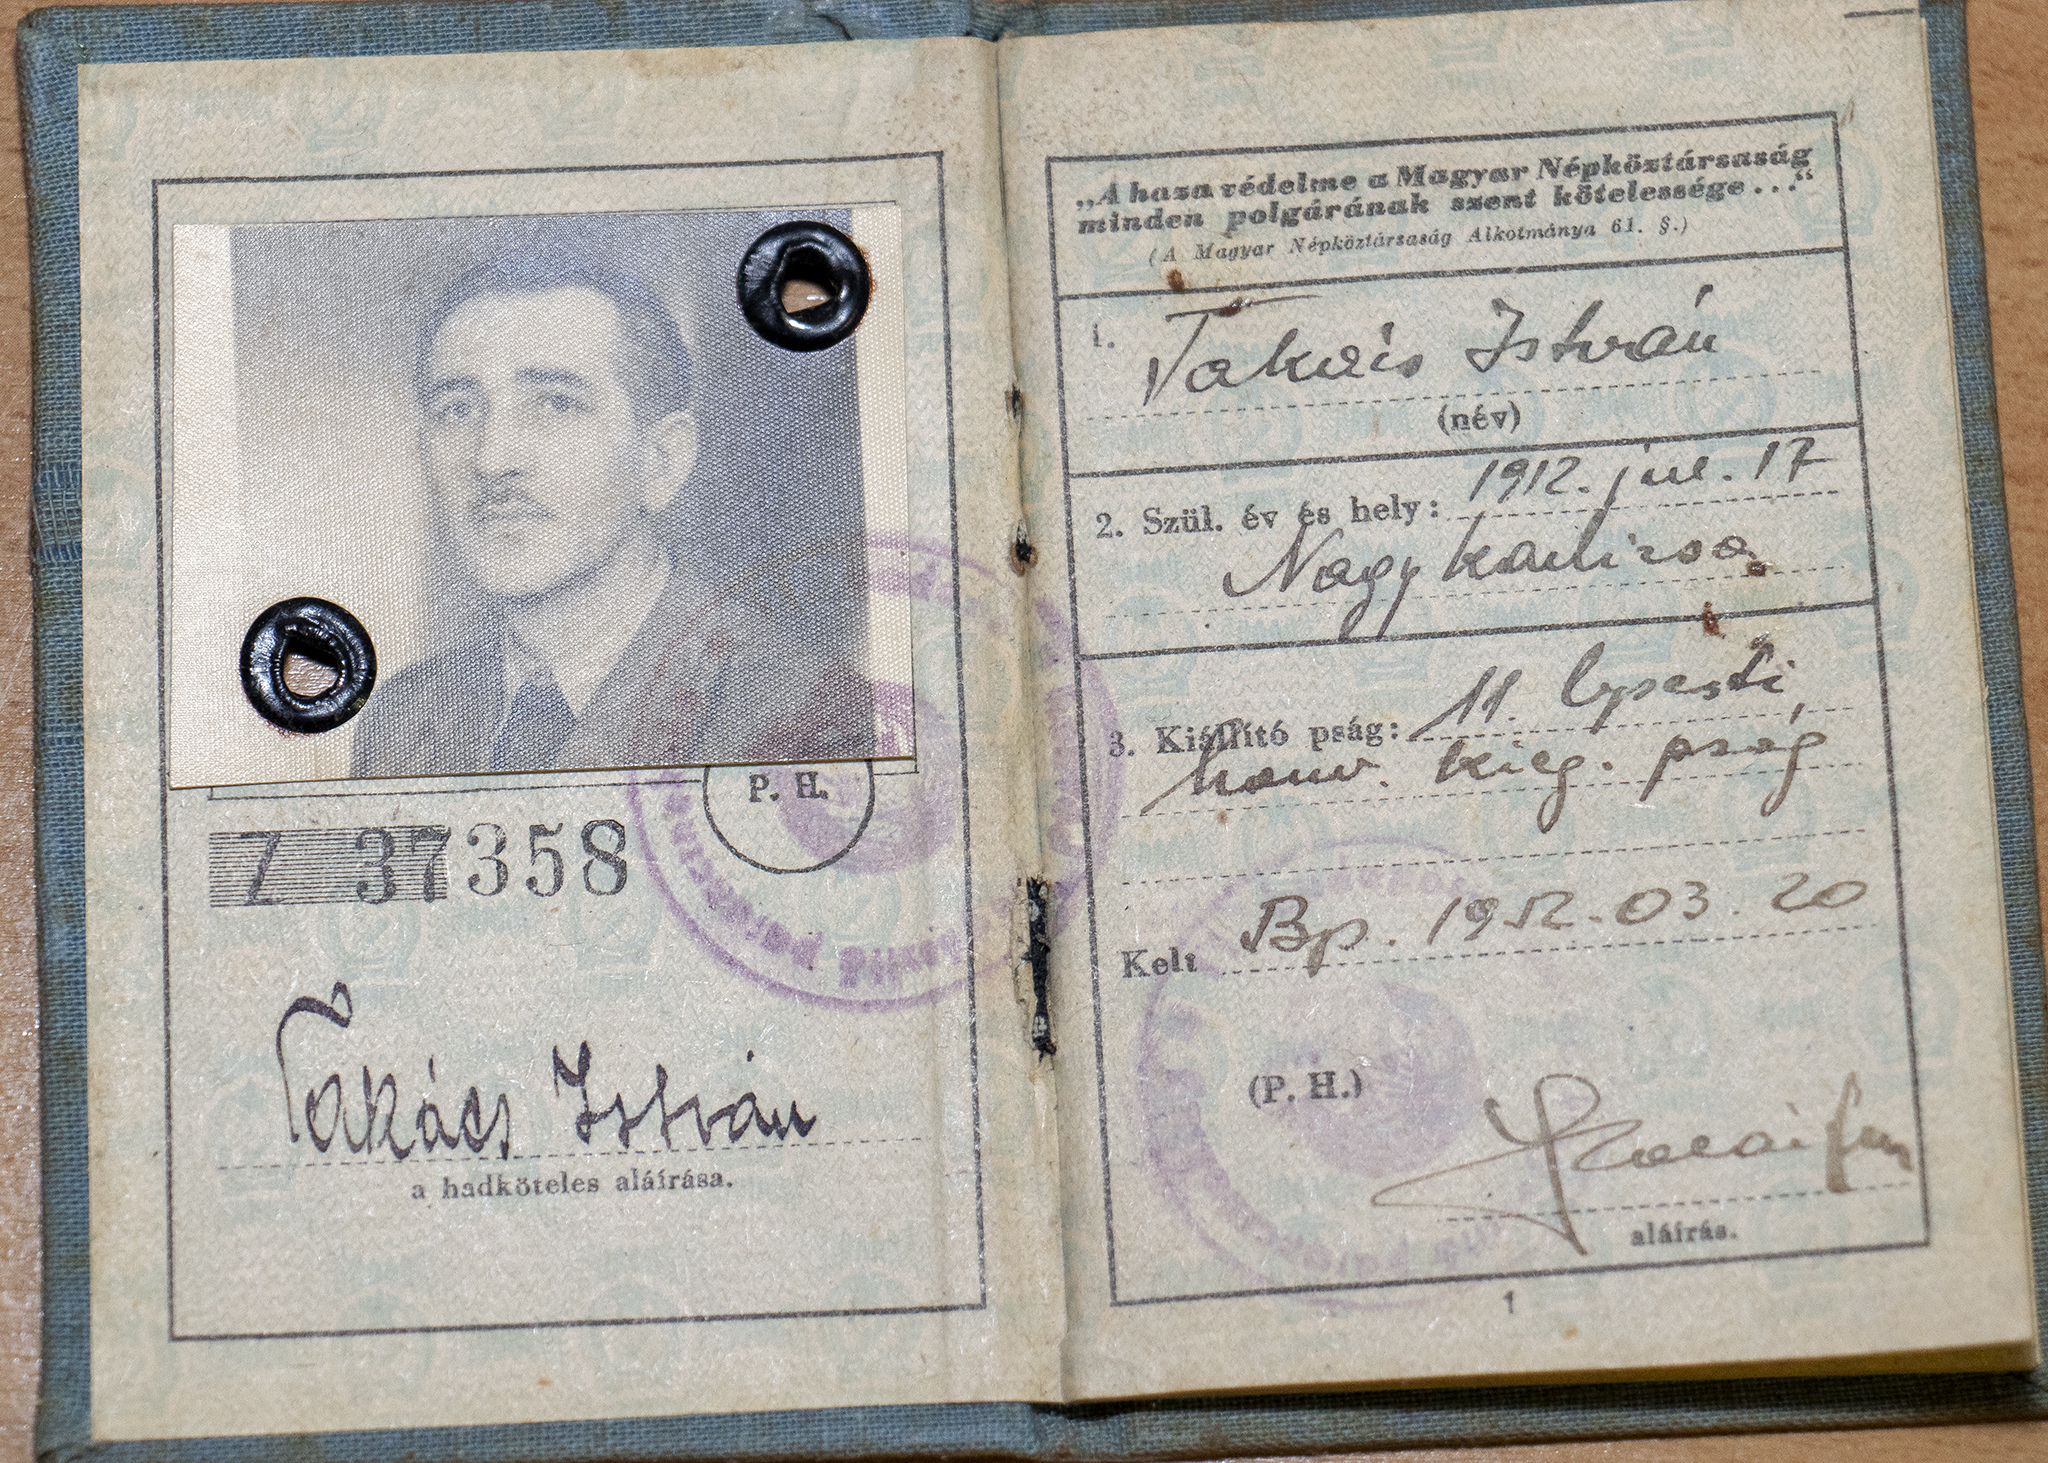 P. H.
Z 37358
Takács István
a hadköteles aláírása.
„A haza védelme a Magyar Népköztársaság
minden polgárának szent kötelessége . . .“
(A Magyar Népköztársaság Alkotmánya 61. §.)
1. Takács István
(név)
2. Szül. év és hely: 1912. júl. 17
Nagykanizsa
3. Kiállító pság: 11. bpesti
honv. kieg. pság
Kelt Bp. 1952.03.20
(P. H.)
aláírás.
1